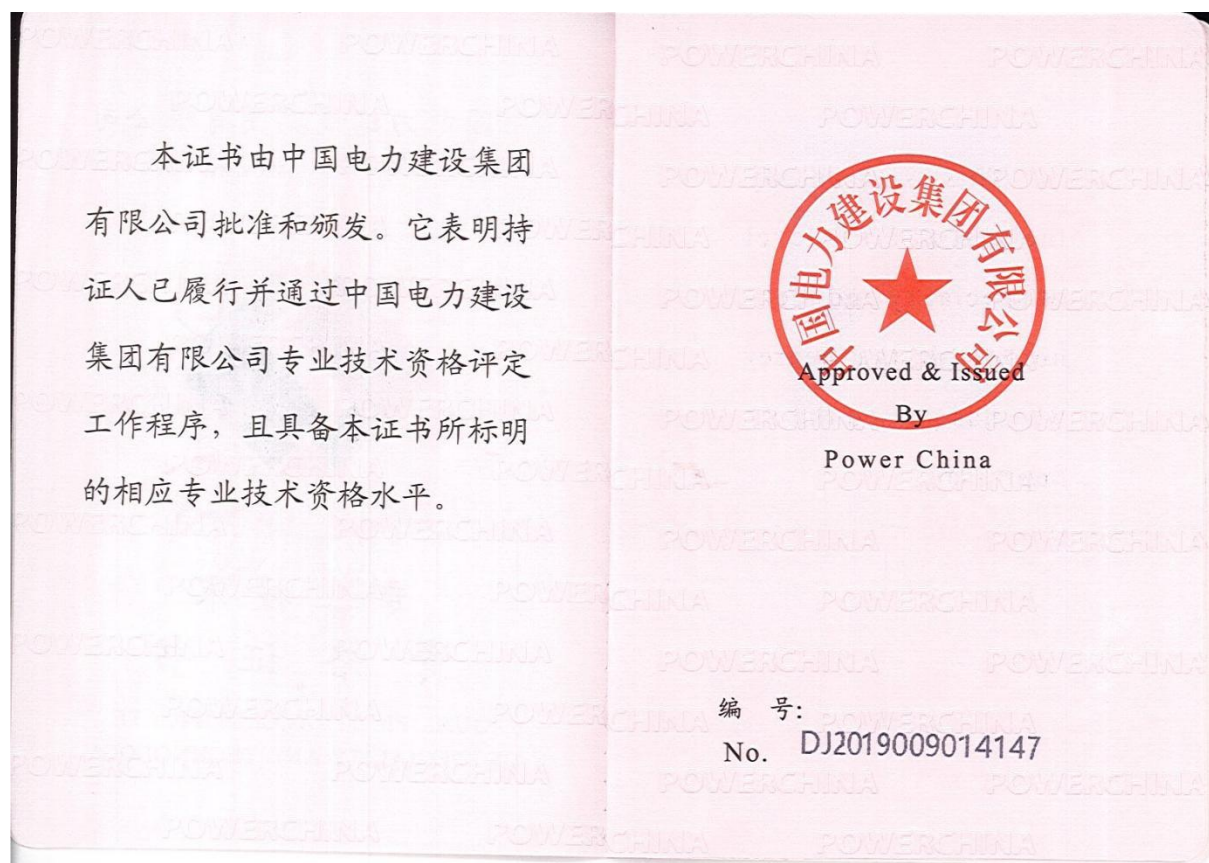 本证书由中国电力建设集团
有限公司批准和颁发。它表明持
证人已履行并通过中国电力建设
集团有限公司专业技术资格评定
工作程序，且具备本证书所标明
的相应专业技术资格水平。
中国电力建设集团有限公司
Approved & Issued
By
Power China
编 号:
No. DJ2019009014147
POWERCHINA